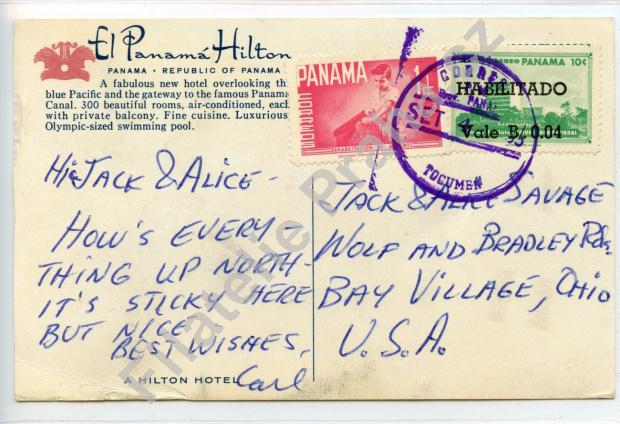 El Panamá Hilton
PANAMA • REPUBLIC OF PANAMA
A fabulous new hotel overlooking th
blue Pacific and the gateway to the famous Panama
Canal. 300 beautiful rooms, air-conditioned, each
with private balcony. Fine cuisine. Luxurious
Olympic-sized swimming pool.
PANAMA
1c
CORREOS
REHABILITACION
CORREO
TOCUMEN
SET
AEREO PANAMA 10¢
HABILITADO
Vale B/. 0.04
Hi JACK & ALICE -
HOW'S EVERY-
THING UP NORTH -
IT'S STICKY HERE
BUT NICE -
BEST WISHES,
Carl
JACK & ALICE SAVAGE
WOLF AND BRADLEY RDS.
BAY VILLAGE, OHIO
U.S.A.
A HILTON HOTEL